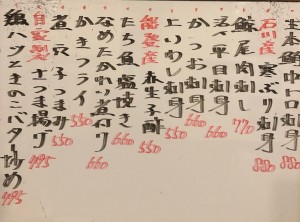 生本鮪中トロ刺身 880
石川産 寒ぶり刺身 880
鯨尾肉刺し 770
活〆平目刺身 660
かつお刺身 660
上りわし刺身 550
能登産 赤生子酢 550
たち魚塩焼き 660
なめたかれい煮付け 660
かきフライ 550
煮京子つまみ 550
自家製 さつま揚げ 495
鶏ハツときのこバター炒め 495